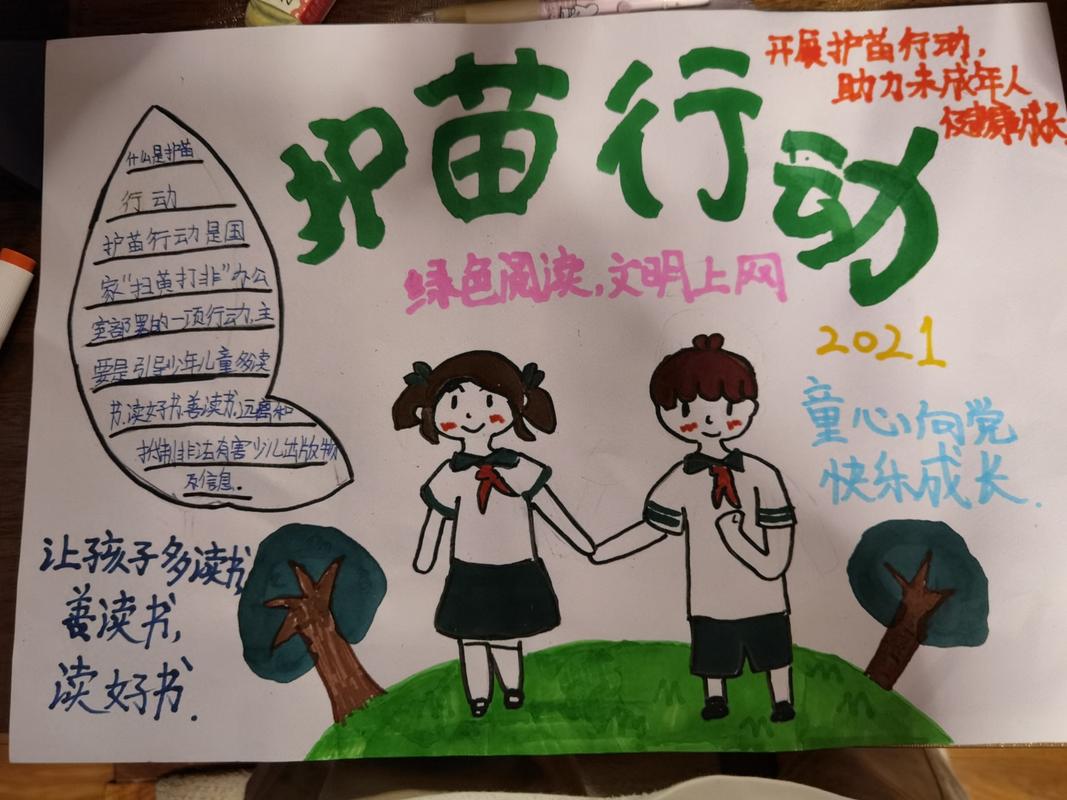 护苗行动
开展护苗行动,
助力未成年人
健康成长
绿色阅读,文明上网
什么是护苗
行动
护苗行动是国
家“扫黄打非”办公
室部署的一项行动,主
要是引导少年儿童多读
书,读好书,善读书,远离和
抵制非法有害少儿出版物
及信息。
2021
童心向党
快乐成长.
让孩子多读书
善读书,
读好书.